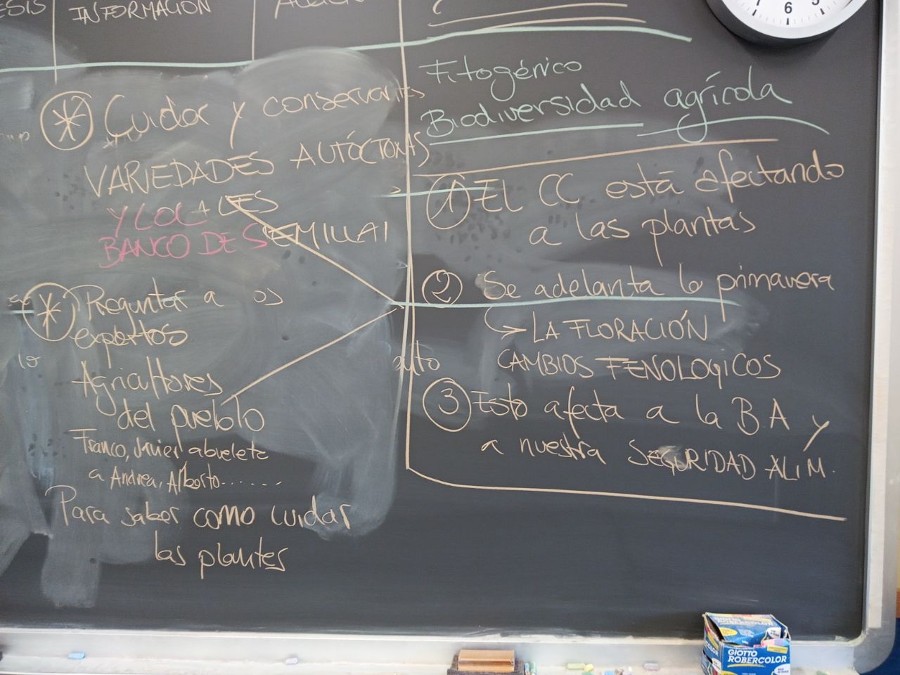 INFORMACIÓN
* Cuidar y conservar
VARIEDADES AUTÓCTONAS
Y LOCALES
BANCO DE SEMILLAS
* Preguntar a os
expertos
Agricultores
del pueblo
Franco, Javier abuelete
a Andrea, Alberto.......
Para saber como cuidar
las plantes
Fitogénico
Biodiversidad agrícola
1 El CC está afectando
a las plantas
2 Se adelanta la primavera
→ LA FLORACIÓN
CAMBIOS FENOLOGICOS
3 Esto afecta a la BA y
a nuestra SEGURIDAD ALIM.
6
GIOTTO
ROBERCOLOR